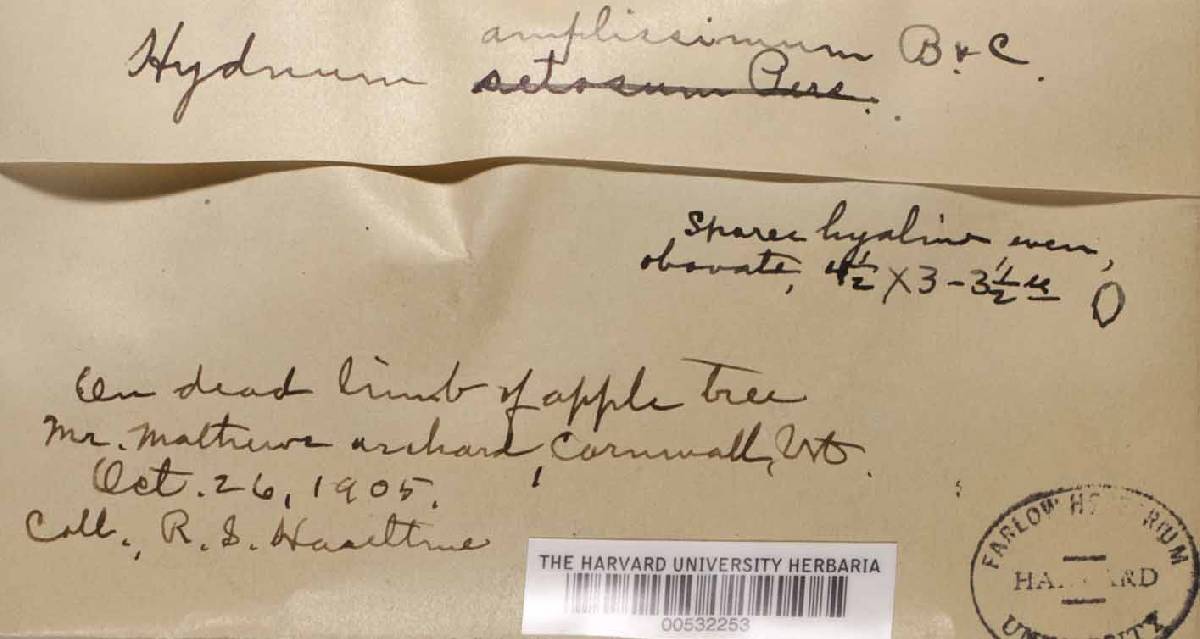 amplissimum B & C.
Hydnum setosum Pers.
Spores hyaline, even,
obovate, 4½ X 3 - 3½ µ
On dead limb of apple tree
Mr. Mathews orchard, Cornwall, Vt.
Oct. 26, 1905.
Coll., R. S. Haseltine
THE HARVARD UNIVERSITY HERBARIA
00532253
FARLOW HERBARIUM
HARVARD
UNIVERSITY